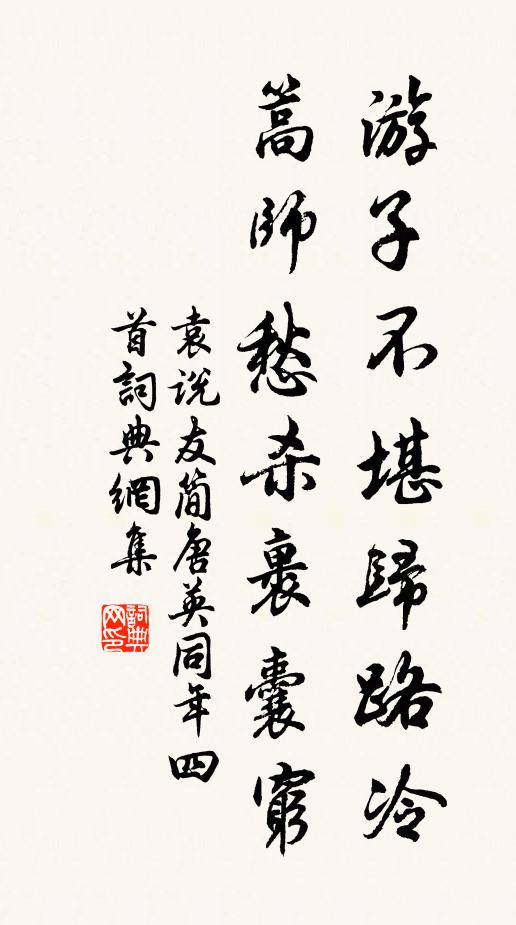 游子不堪歸路冷
篙師愁杀裹囊窮
袁说友简唐英同年四
首詞典網集
詞典网印